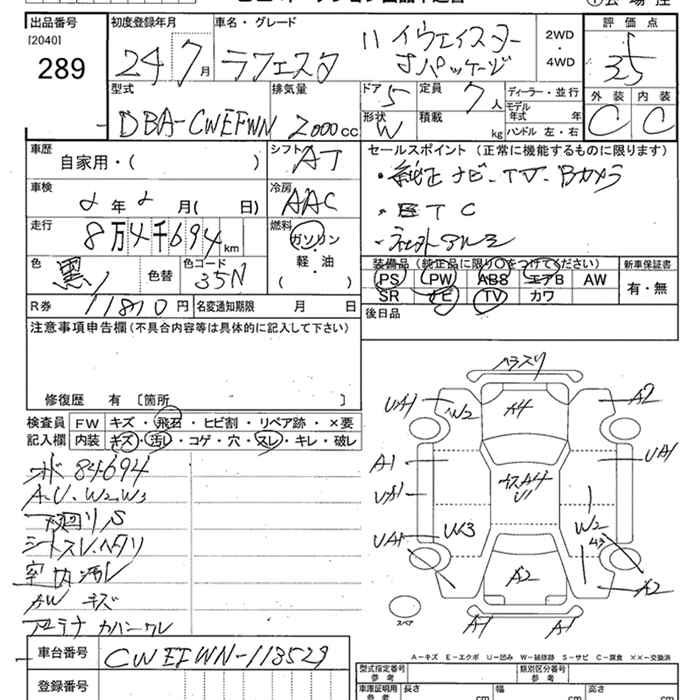 出品番号 初度登録年月 車名・グレード 評価点
[2040]
289 24 7月 ラフェスタ ハイウェイスター Jパッケージ 2WD・4WD 3.5
外装 内装
C C
型式 排気量 ドア 5 定員 7人 ディーラー・並行
DBA-CWEFWN 2000cc 形状 W 積載 kg モデル年式 年
ハンドル 左・右
車歴 シフト AT セールスポイント (正常に機能するものに限ります)
自家用・( ) ・純正ナビ・TV・Bカメラ
車検 冷房 AAC ・ETC
2年2月( 日) ・社外アルミ
走行 8万4千694km 燃料 ガソリン・軽・油 ( )
色 黒 色替 色コード 35N
装備品 (純正品に限り○をつけてください) 新車保証書
PS PW ABS エアB AW 有・無
SR ナビ TV カワ
R券 11870円 名変通知期限 月 日 後日品
注意事項申告欄 (不具合内容等は具体的に記入して下さい)
修復歴 有 [箇所 ]
検査員 FW キズ・飛石・ヒビ割・リペア跡・×要
記入欄 内装 キズ・汚レ・コゲ・穴・スレ・キレ・破レ
84694
A.U.W2.W3
下廻リS
シートスレ.ヘタリ
室内汚レ
AW キズ
アンテナ カバーワレ
ヘラズリ
UA1 W2 A4 A2
A1 UA1
ガラスA4
U1
W3 W2
UA1 A2 A2
スペア A1 A1
A-キズ E-エクボ U-凹み W-補修跡 S-サビ C-腐食 ××-交換済
車台番号 CWEFWN-113529
登録番号
型式指定番号 参考 類別区分番号 参考
車庫証明用 参考 長さ cm 幅 cm 高さ cm